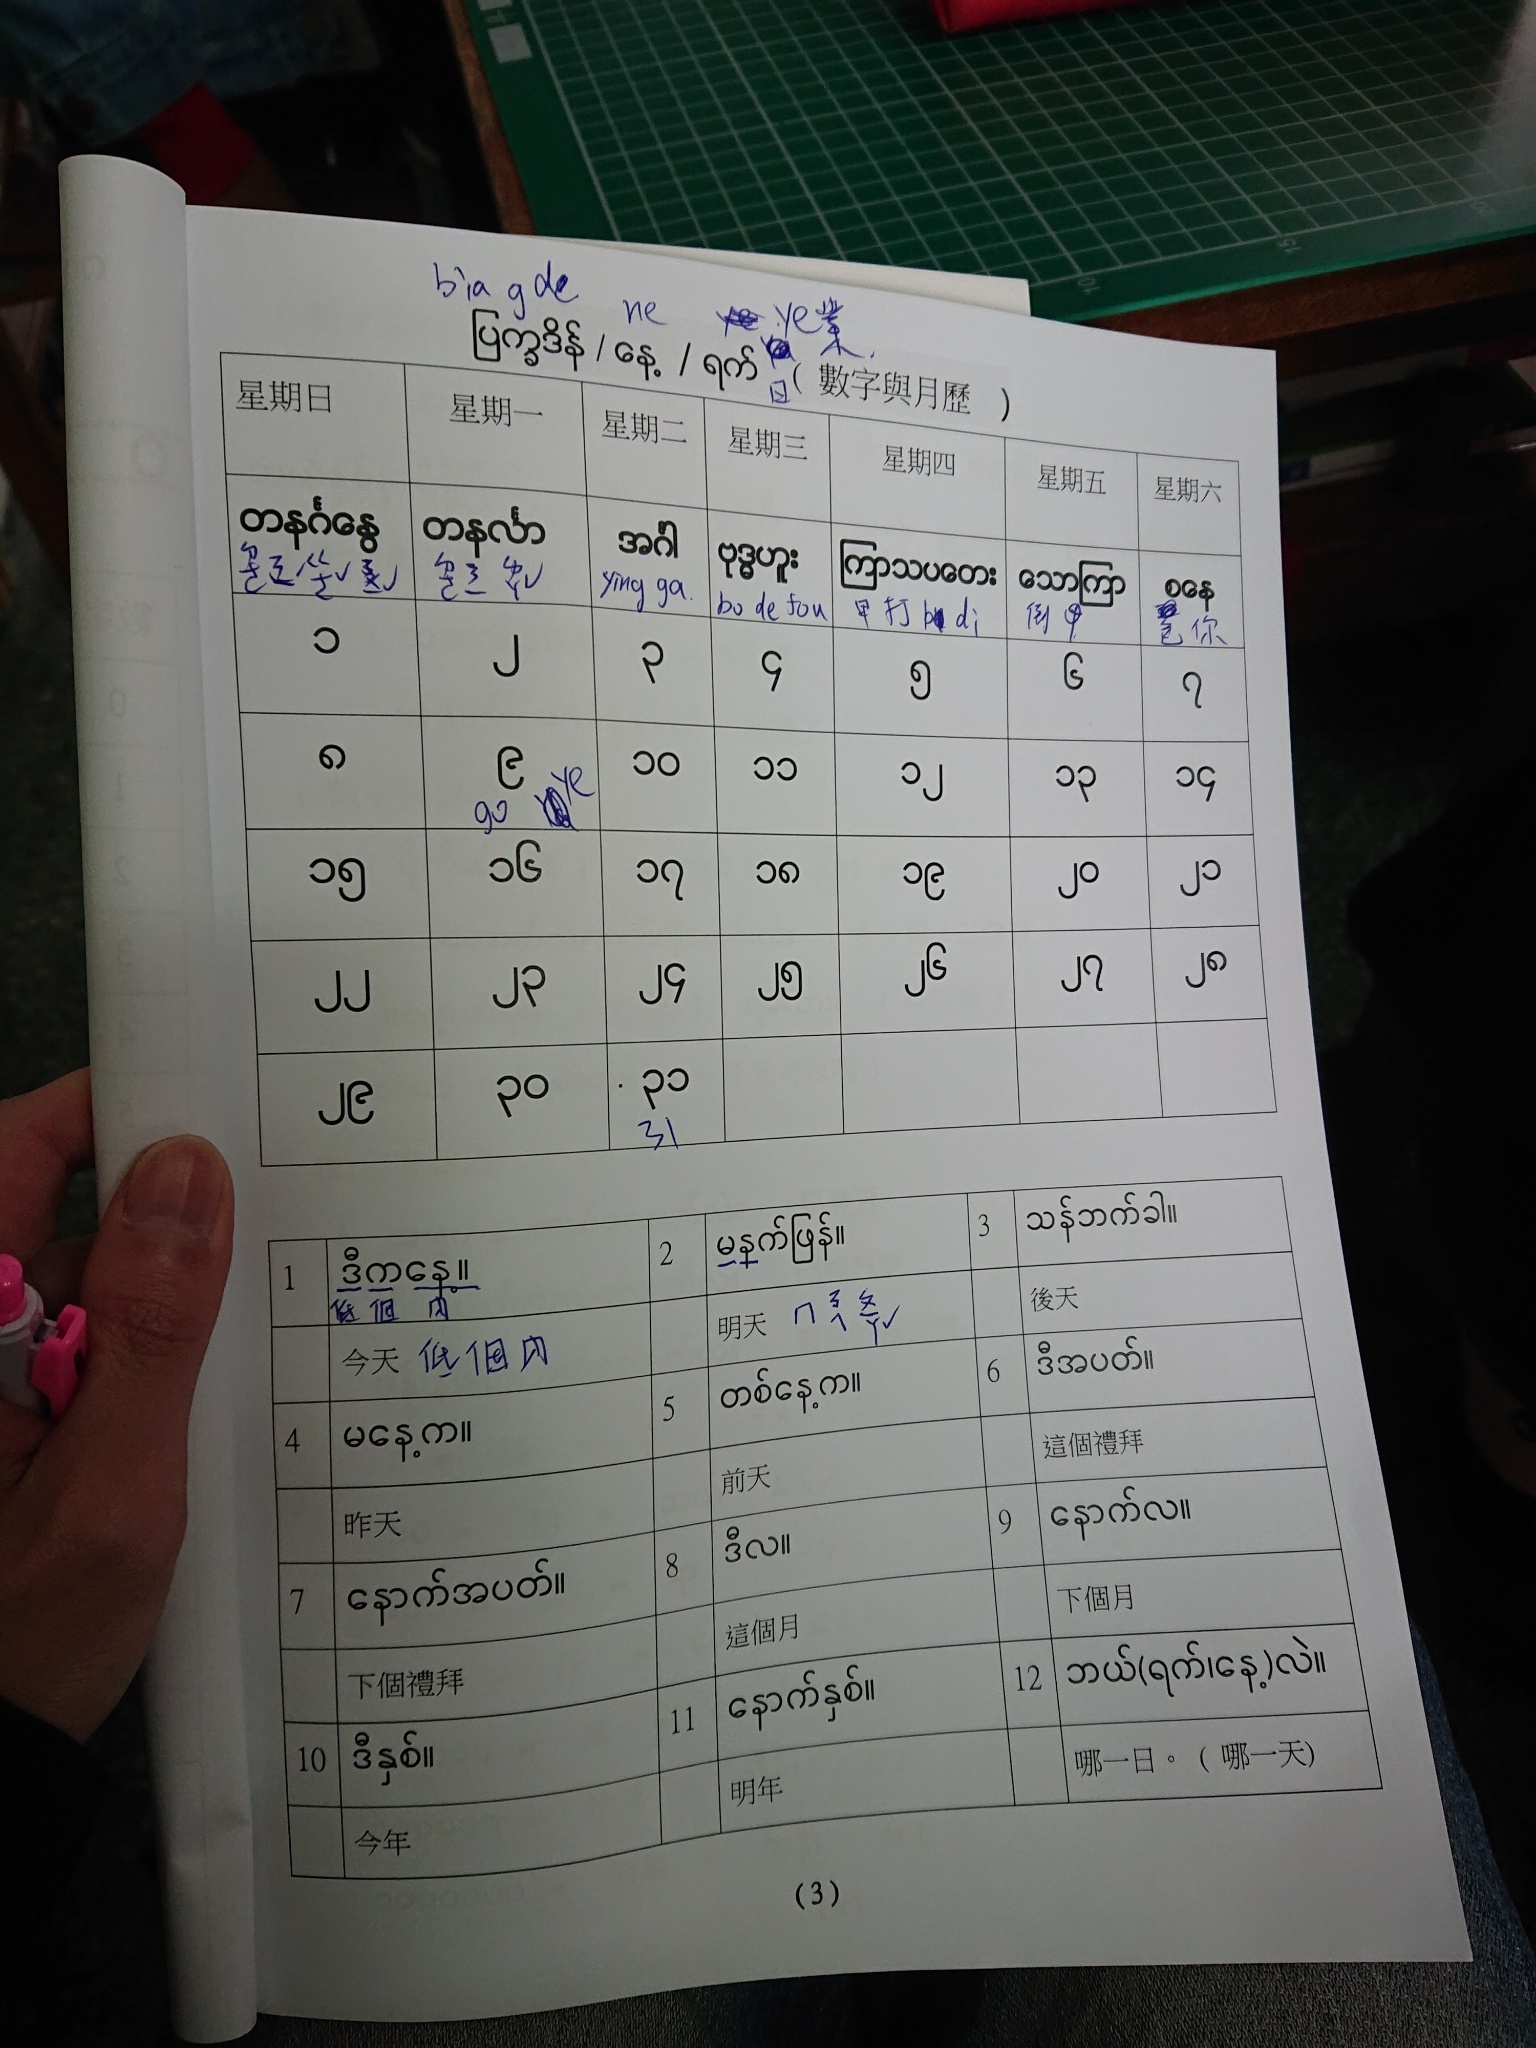 bia g de ne ye 業
ပြက္ခဒိန် / နေ့ / ရက် 日 ( 數字與月歷 )
星期日 星期一 星期二 星期三 星期四 星期五 星期六
တနင်္ဂနွေ တနင်္လာ အင်္ဂါ ဗုဒ္ဓဟူး ကြာသပတေး သောကြာ စနေ
ying ga. bo de fou 甲打 b di 倒甲 色你
၁ ၂ ၃ ၄ ၅ ၆ ၇
၈ ၉ ၁၀ ၁၁ ၁၂ ၁၃ ၁၄
go ye
၁၅ ၁၆ ၁၇ ၁၈ ၁၉ ၂၀ ၂၁
၂၂ ၂၃ ၂၄ ၂၅ ၂၆ ၂၇ ၂၈
၂၉ ၃၀ ၃၁
31
1 ဒီကနေ့။ 2 မနက်ဖြန်။ 3 သန်ဘက်ခါ။
低 個 內
今天 低個內 明天 後天
4 မနေ့က။ 5 တစ်နေ့က။ 6 ဒီအပတ်။
昨天 前天 這個禮拜
7 နောက်အပတ်။ 8 ဒီလ။ 9 နောက်လ။
下個禮拜 這個月 下個月
10 ဒီနှစ်။ 11 နောက်နှစ်။ 12 ဘယ်(ရက်၊နေ့)လဲ။
今年 明年 哪一日。( 哪一天)
(3)